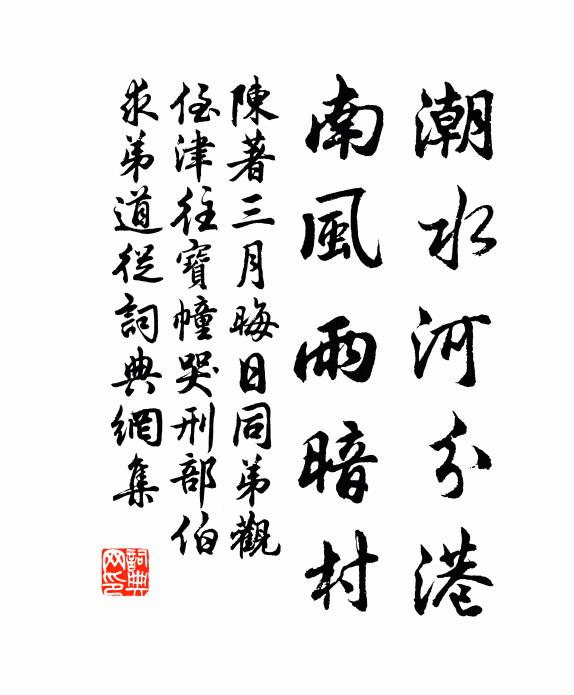 潮水河分港
南風雨暗村
陳著三月晦日同弟觀
侄津往寶幢哭刑部伯
求弟道從詞典網集
詞典
网印